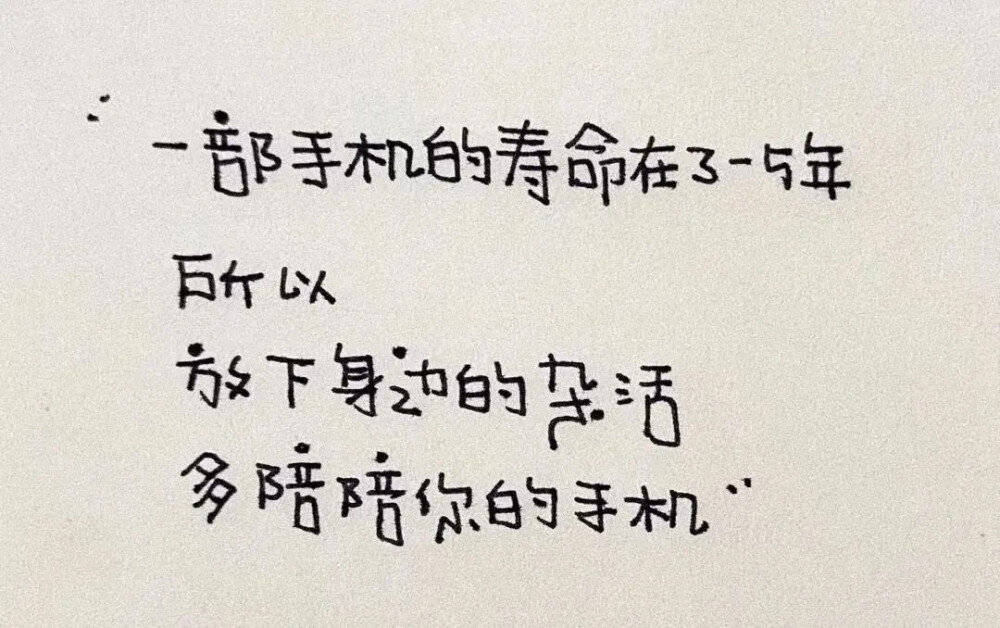 “一部手机的寿命在3-5年
所以
放下身边的杂活
多陪陪你的手机”